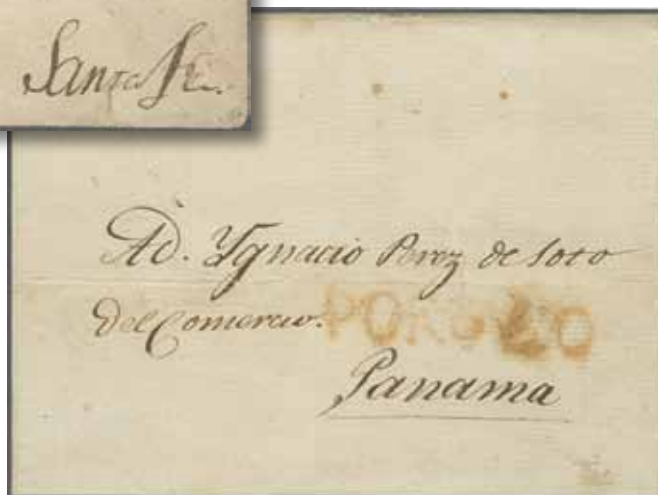 Santa Fe.
Ad. Ygnacio Perez de Soto
del Comercio.
Panama